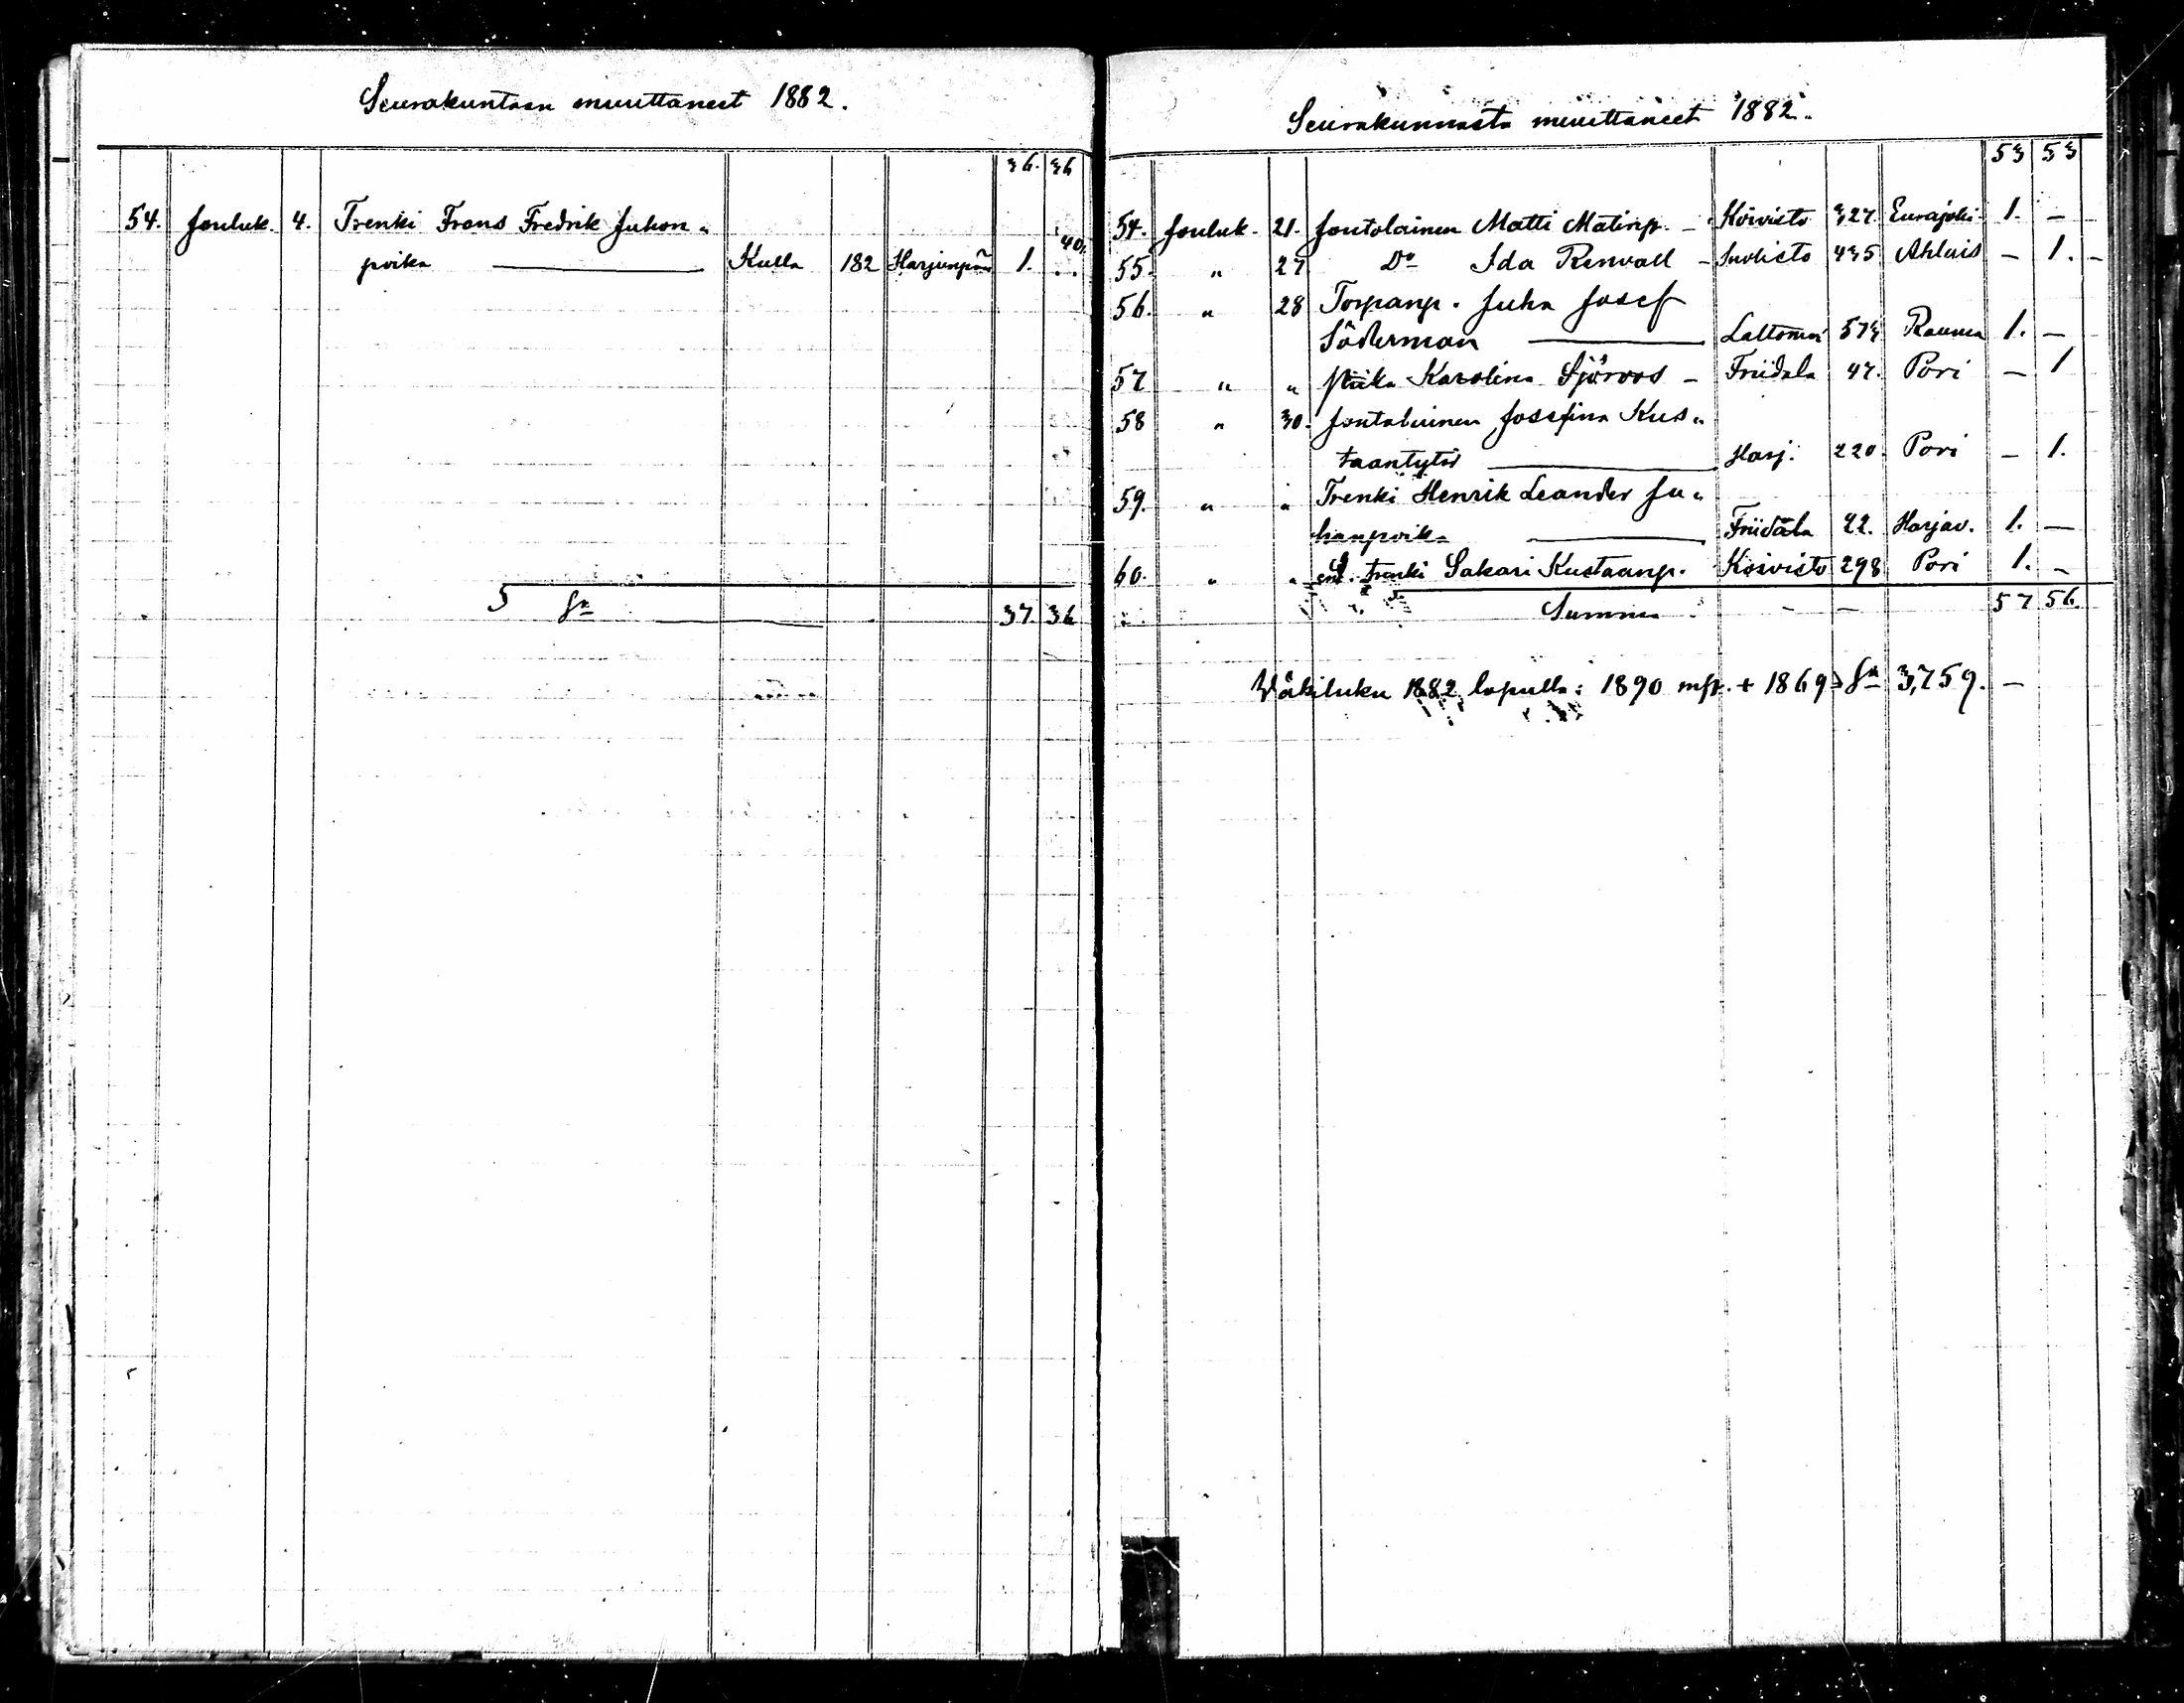 Seurakuntaan muuttaneet 1882.
36. 36
54. Jouluk. 4. Trenki Frans Fredrik Juhon„
poika — Kulla 182 Harjunpää 1. 40.
Sa — 37. 36
Seurakunnasta muuttaneet 1882.
53 53
54. Jouluk. 21. Joutolainen Matti Matinp. – Koivisto 327. Eurajoki. 1. –
55. „ 27 Do Ida Renvall – Suolisto 435 Ahlais – 1. –
56. „ 28 Torpanp. Juha Josef
Söderman — Lattomeri 573 Rauma 1. –
57 „ „ Piika Karolina Sjöroos – Friidala 47. Pori – 1
58 „ 30. Joutolainen Josefina Kus„
taantytär — Harj. 220. Pori – 1.
59. „ „ Trenki Henrik Leander Ju„
hanpoika — Friidala 22. Harjav. 1. –
60. „ „ ent. trenki Sakari Kustaanp. Koivisto 298 Pori 1. –
Summa – – 57 56.
Wäkiluku 1882 lopulla: 1890 mp. + 1869 = Sa 3,759. –